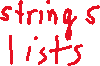 strings
lists